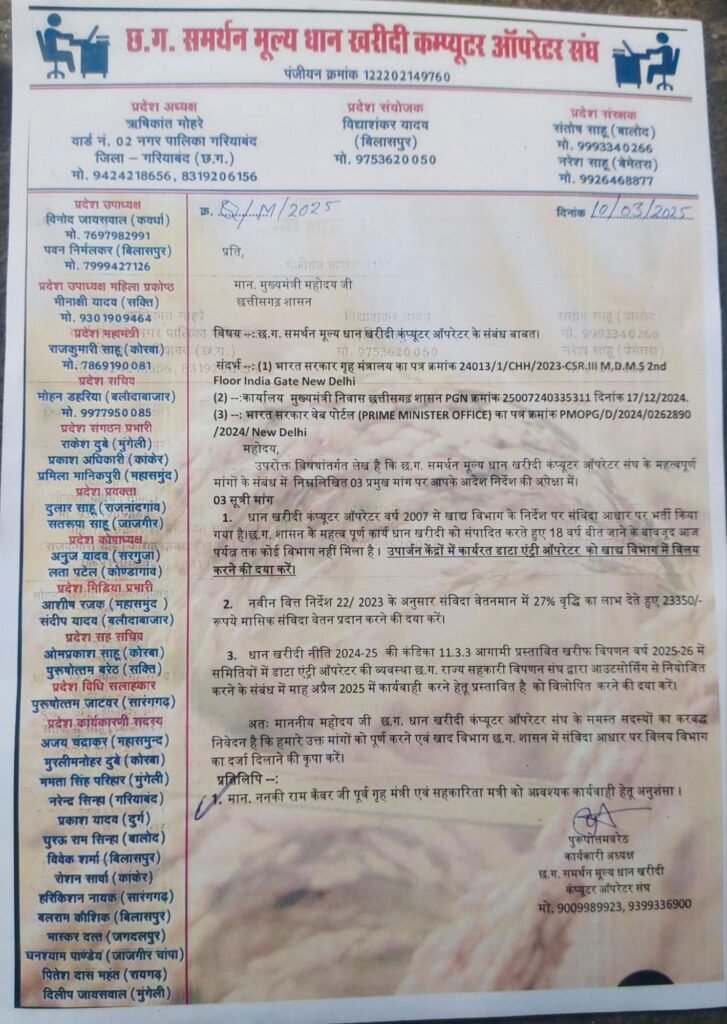 छ.ग. समर्थन मूल्य धान खरीदी कम्प्यूटर ऑपरेटर संघ
पंजीयन क्रमांक 122202149760
प्रदेश अध्यक्ष
ऋषिकांत मोहरे
वार्ड नं. 02 नगर पालिका गरियाबंद
जिला – गरियाबंद (छ.ग.)
मो. 9424218656, 8319206156
प्रदेश संयोजक
विद्याशंकर यादव
(बिलासपुर)
मो. 9753620050
प्रदेश संरक्षक
संतोष साहू (बालोद)
मो. 9993340266
नरेश साहू (बेमेतरा)
मो. 9926468877
प्रदेश उपाध्यक्ष
विनोद जायसवाल (कवर्धा)
मो. 7697982991
पवन निर्मलकर (बिलासपुर)
मो. 7999427126
प्रदेश उपाध्यक्ष महिला प्रकोष्ठ
मीनाक्षी यादव (सक्ति)
मो. 9301909464
प्रदेश महामंत्री
राजकुमारी साहू (कोरबा)
मो. 7869190081
प्रदेश सचिव
मोहन डहरिया (बलौदाबाजार)
मो. 9977950085
प्रदेश संगठन प्रभारी
राकेश दुबे (मुंगेली)
प्रकाश अधिकारी (कांकेर)
प्रमिला मानिकपुरी (महासमुंद)
प्रदेश प्रवक्ता
दुलार साहू (राजनादगाव)
सतरूपा साहू (जांजगीर)
प्रदेश कोषाध्यक्ष
अनुज यादव (सरगुजा)
लता पटेल (कोण्डागांव)
प्रदेश मिडिया प्रभारी
आशीष रजक (महासमुंद )
संदीप यादव (बलौदाबाजार)
प्रदेश सह सचिव
ओमप्रकाश साहू (कोरबा)
पुरुषोत्तम बरेठ (सक्ति)
प्रदेश विधि सलाहकार
पुरुषोत्तम जाटवर (सारंगगढ़)
प्रदेश कार्यकारणी सदस्य
अजय चंद्राकर (महासमुन्द)
मुरलीमनोहर दुबे (कोरबा)
ममता सिंह परिहार (मुंगेली)
नरेन्द्र सिन्हा (गरियाबंद)
प्रकाश यादव (दुर्ग)
पुरऊ राम सिन्हा (बालोद)
विवेक शर्मा (बिलासपुर)
रोशन सार्वा (कांकेर)
हरिकिशन नायक (सारंगगढ़)
बलराम कौशिक (बिलासपुर)
भास्कर दत्त (जगदलपुर)
घनश्याम पाण्डेय (जांजगीर चांपा)
पितेश दास महंत (रायगढ़)
दिलीप जायसवाल (मुंगेली)
क्र. /M/2025
दिनांक 10/03/2025
प्रति,
मान. मुख्यमंत्री महोदय जी
छत्तीसगढ़ शासन
विषय --: छ.ग. समर्थन मूल्य धान खरीदी कंप्यूटर ऑपरेटर के संबंध बाबत।
संदर्भ --: (1) भारत सरकार गृह मंत्रालय का पत्र क्रमांक 24013/1/CHH/2023-CSR.III M,D.M.S 2nd
Floor India Gate New Delhi
(2) --:कार्यालय मुख्यमंत्री निवास छत्तीसगढ़ शासन PGN क्रमांक 25007240335311 दिनांक 17/12/2024.
(3) --: भारत सरकार वेब पोर्टल (PRIME MINISTER OFFICE) का पत्र क्रमांक PMOPG/D/2024/0262890
/2024/ New Delhi
महोदय,
उपरोक्त विषयांतर्गत लेख है कि छ.ग. समर्थन मूल्य धान खरीदी कंप्यूटर ऑपरेटर संघ के महत्वपूर्ण
मांगों के संबंध में निम्नलिखित 03 प्रमुख मांग पर आपके आदेश निर्देश की अपेक्षा में।
03 सूत्री मांग
1. धान खरीदी कंप्यूटर ऑपरेटर वर्ष 2007 से खाद्य विभाग के निर्देश पर संविदा आधार पर भर्ती किया
गया है।छ.ग. शासन के महत्व पूर्ण कार्य धान खरीदी को संपादित करते हुए 18 वर्ष बीत जाने के बावजूद आज
पर्यन्त तक कोई विभाग नहीं मिला है। उपार्जन केंद्रों में कार्यरत डाटा एंट्री ऑपरेटर को खाद्य विभाग में विलय
करने की दया करें।
2. नवीन वित्त निर्देश 22/ 2023 के अनुसार संविदा वेतनमान में 27% वृद्धि का लाभ देते हुए 23350/-
रूपये मासिक संविदा वेतन प्रदान करने की दया करें।
3. धान खरीदी नीति 2024-25 की कंडिका 11.3.3 आगामी प्रस्तावित खरीफ विपणन वर्ष 2025-26 में
समितियों में डाटा एंट्री ऑपरेटर की व्यवस्था छ.ग. राज्य सहकारी विपणन संघ द्वारा आउटसोर्सिंग से नियोजित
करने के संबंध में माह अप्रैल 2025 में कार्यवाही करने हेतु प्रस्तावित है को विलोपित करने की दया करें।
अतः माननीय महोदय जी छ.ग. धान खरीदी कंप्यूटर ऑपरेटर संघ के समस्त सदस्यों का करबद्ध
निवेदन है कि हमारे उक्त मांगों को पूर्ण करने एवं खाद विभाग छ.ग. शासन में संविदा आधार पर विलय विभाग
का दर्जा दिलाने की कृपा करें।
प्रतिलिपि --:
1. मान. ननकी राम कंवर जी पूर्व गृह मंत्री एवं सहकारिता मत्री को आवश्यक कार्यवाही हेतु अनुशंसा ।
पुरूषोत्तमबरेठ
कार्यकारी अध्यक्ष
छ.ग. समर्थन मूल्य धान खरीदी
कंप्यूटर ऑपरेटर संघ
मो. 9009989923, 9399336900